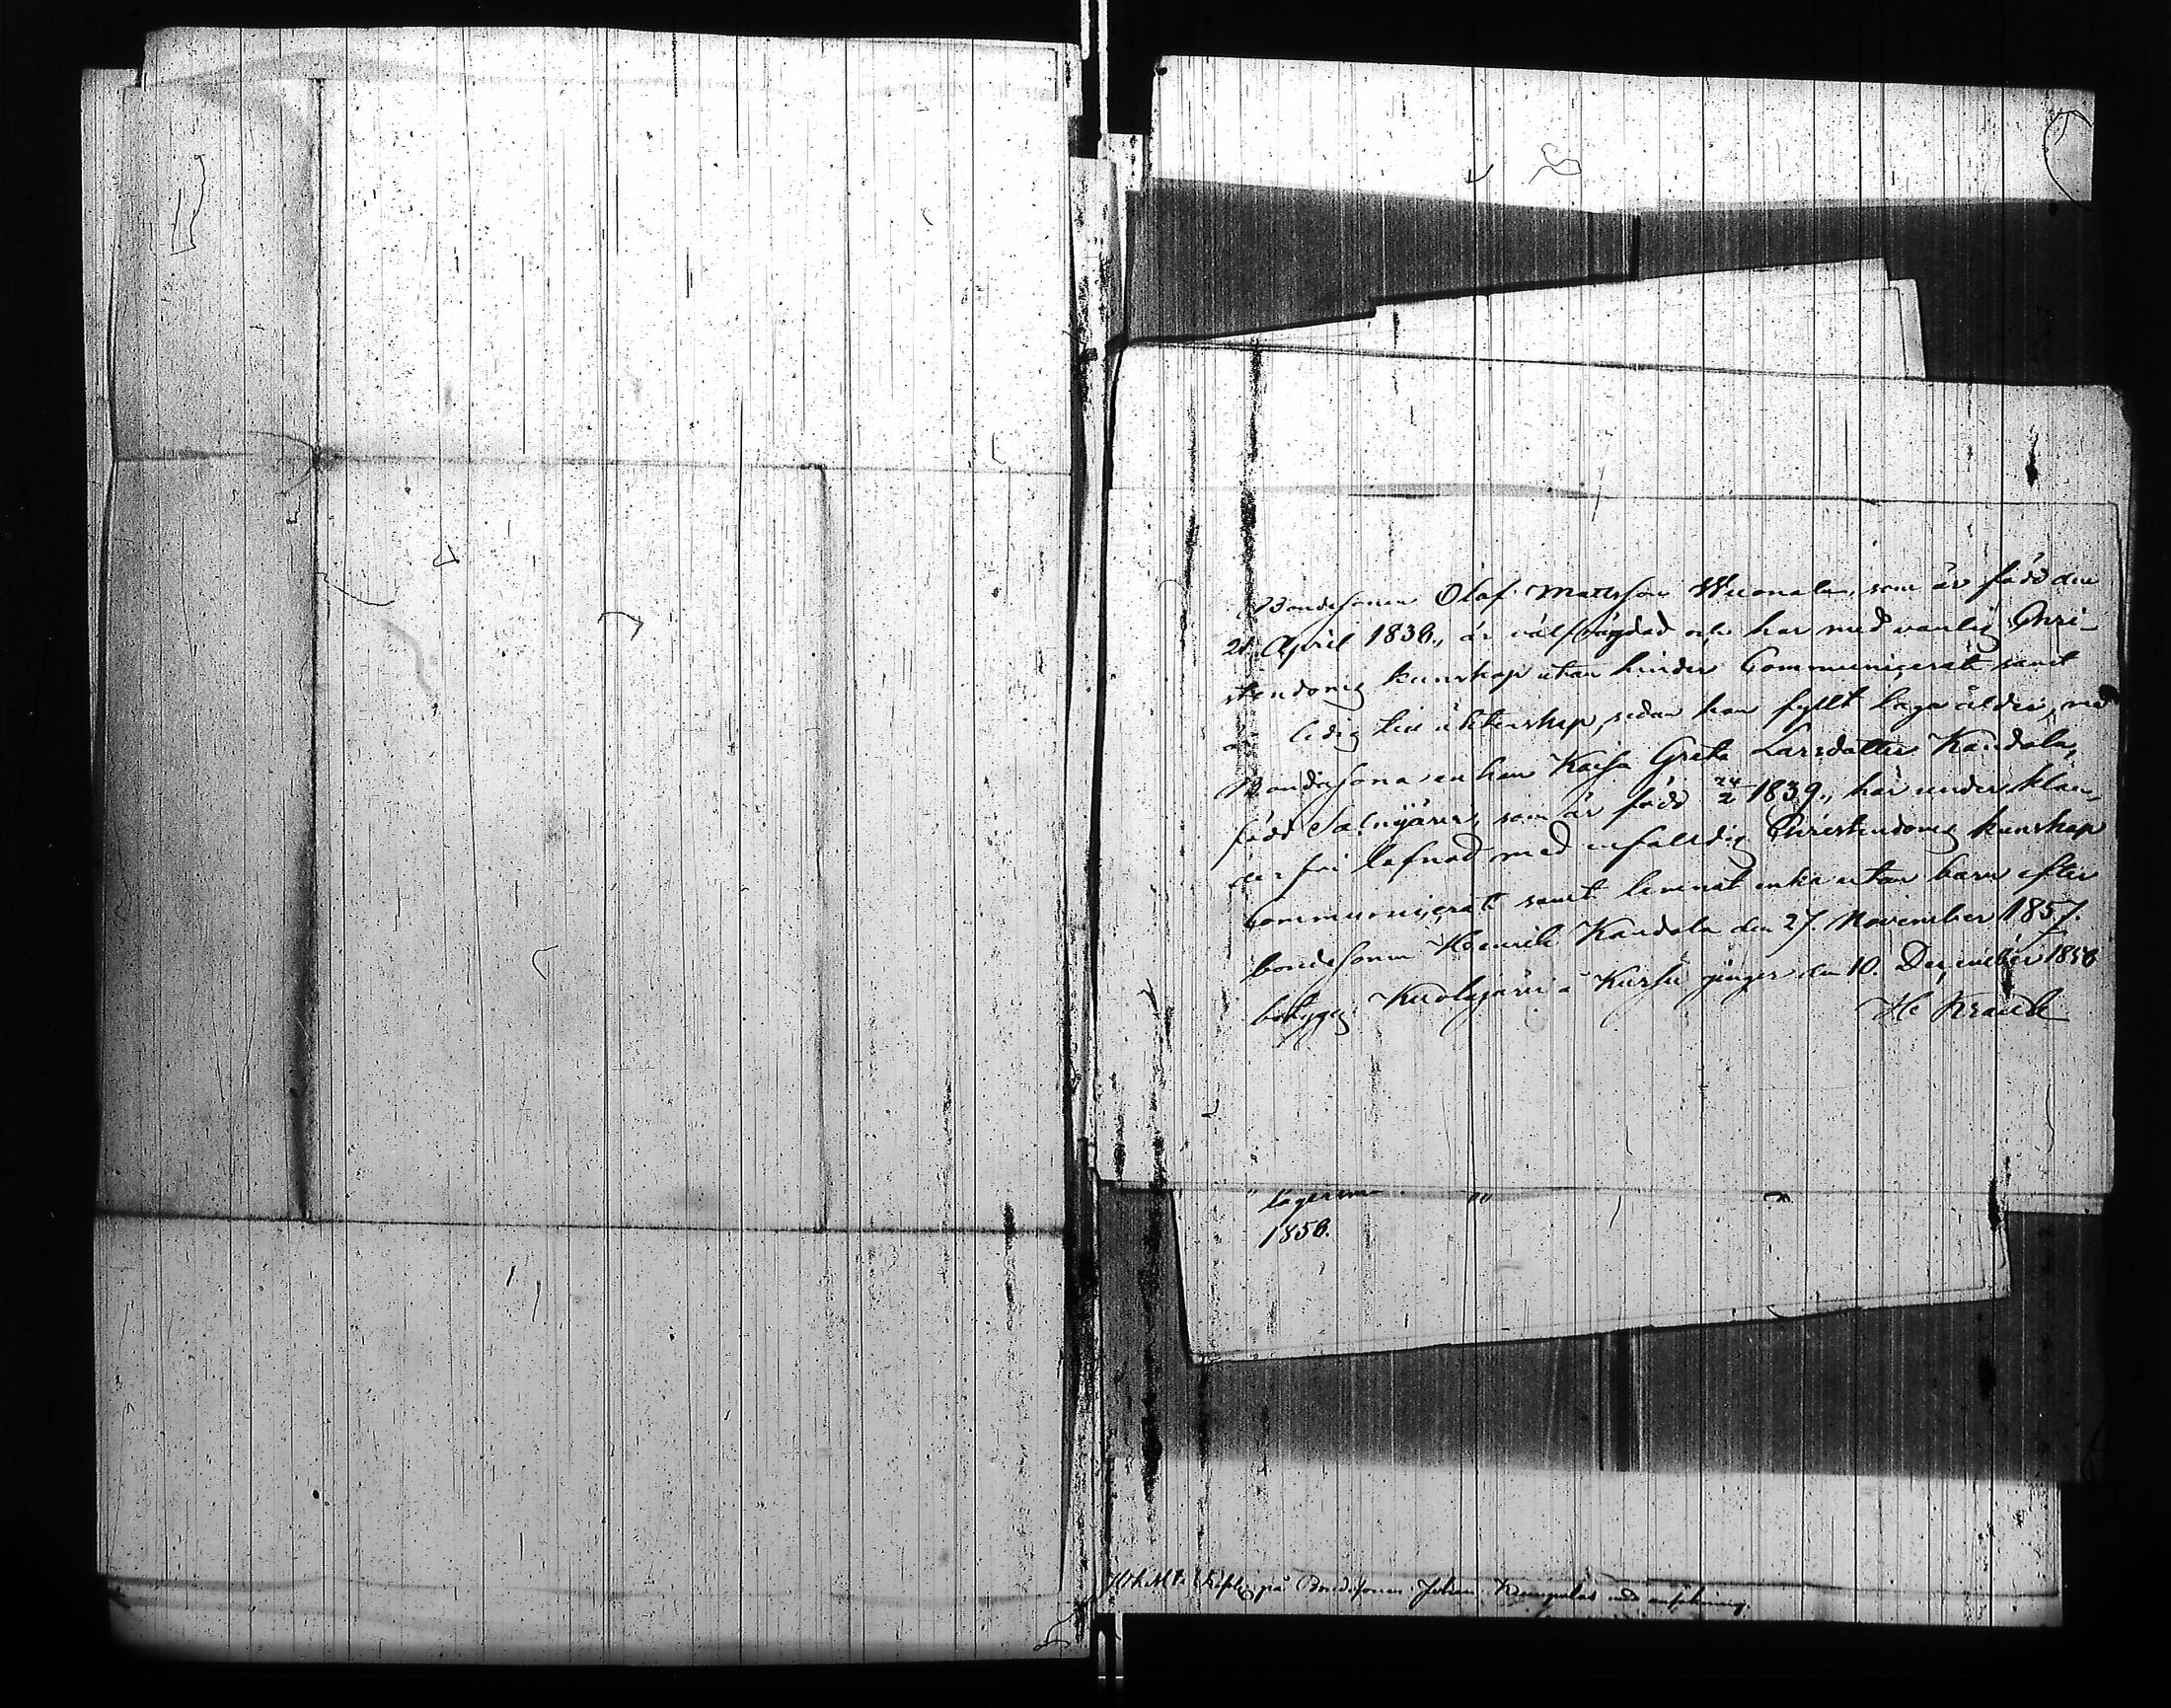 Bondesonen Olaf Mattsson Wuonala, som är född den
21 April 1836., är välfrägdad och har med vanlig Chri-
stendoms kunskap utan hinder Communicerat samt
är ledig till äktenskap, sedan han fyllt laga ålder, med
Bondesona enkan Kaisa Greta Larsdotter Kandola,
född Salmijärvi, som är född 24/2 1839., har under klan-
der fri lefnad med enfalldig Christendoms kunskap
Communicerat samt lemnat enka utan barn efter
bondesonen Henrik Kandola den 27. November 1857.
Kuolajärvi Kursu den 10. December 1858
H
1858.
på Bondesonen Johan med ansökning.